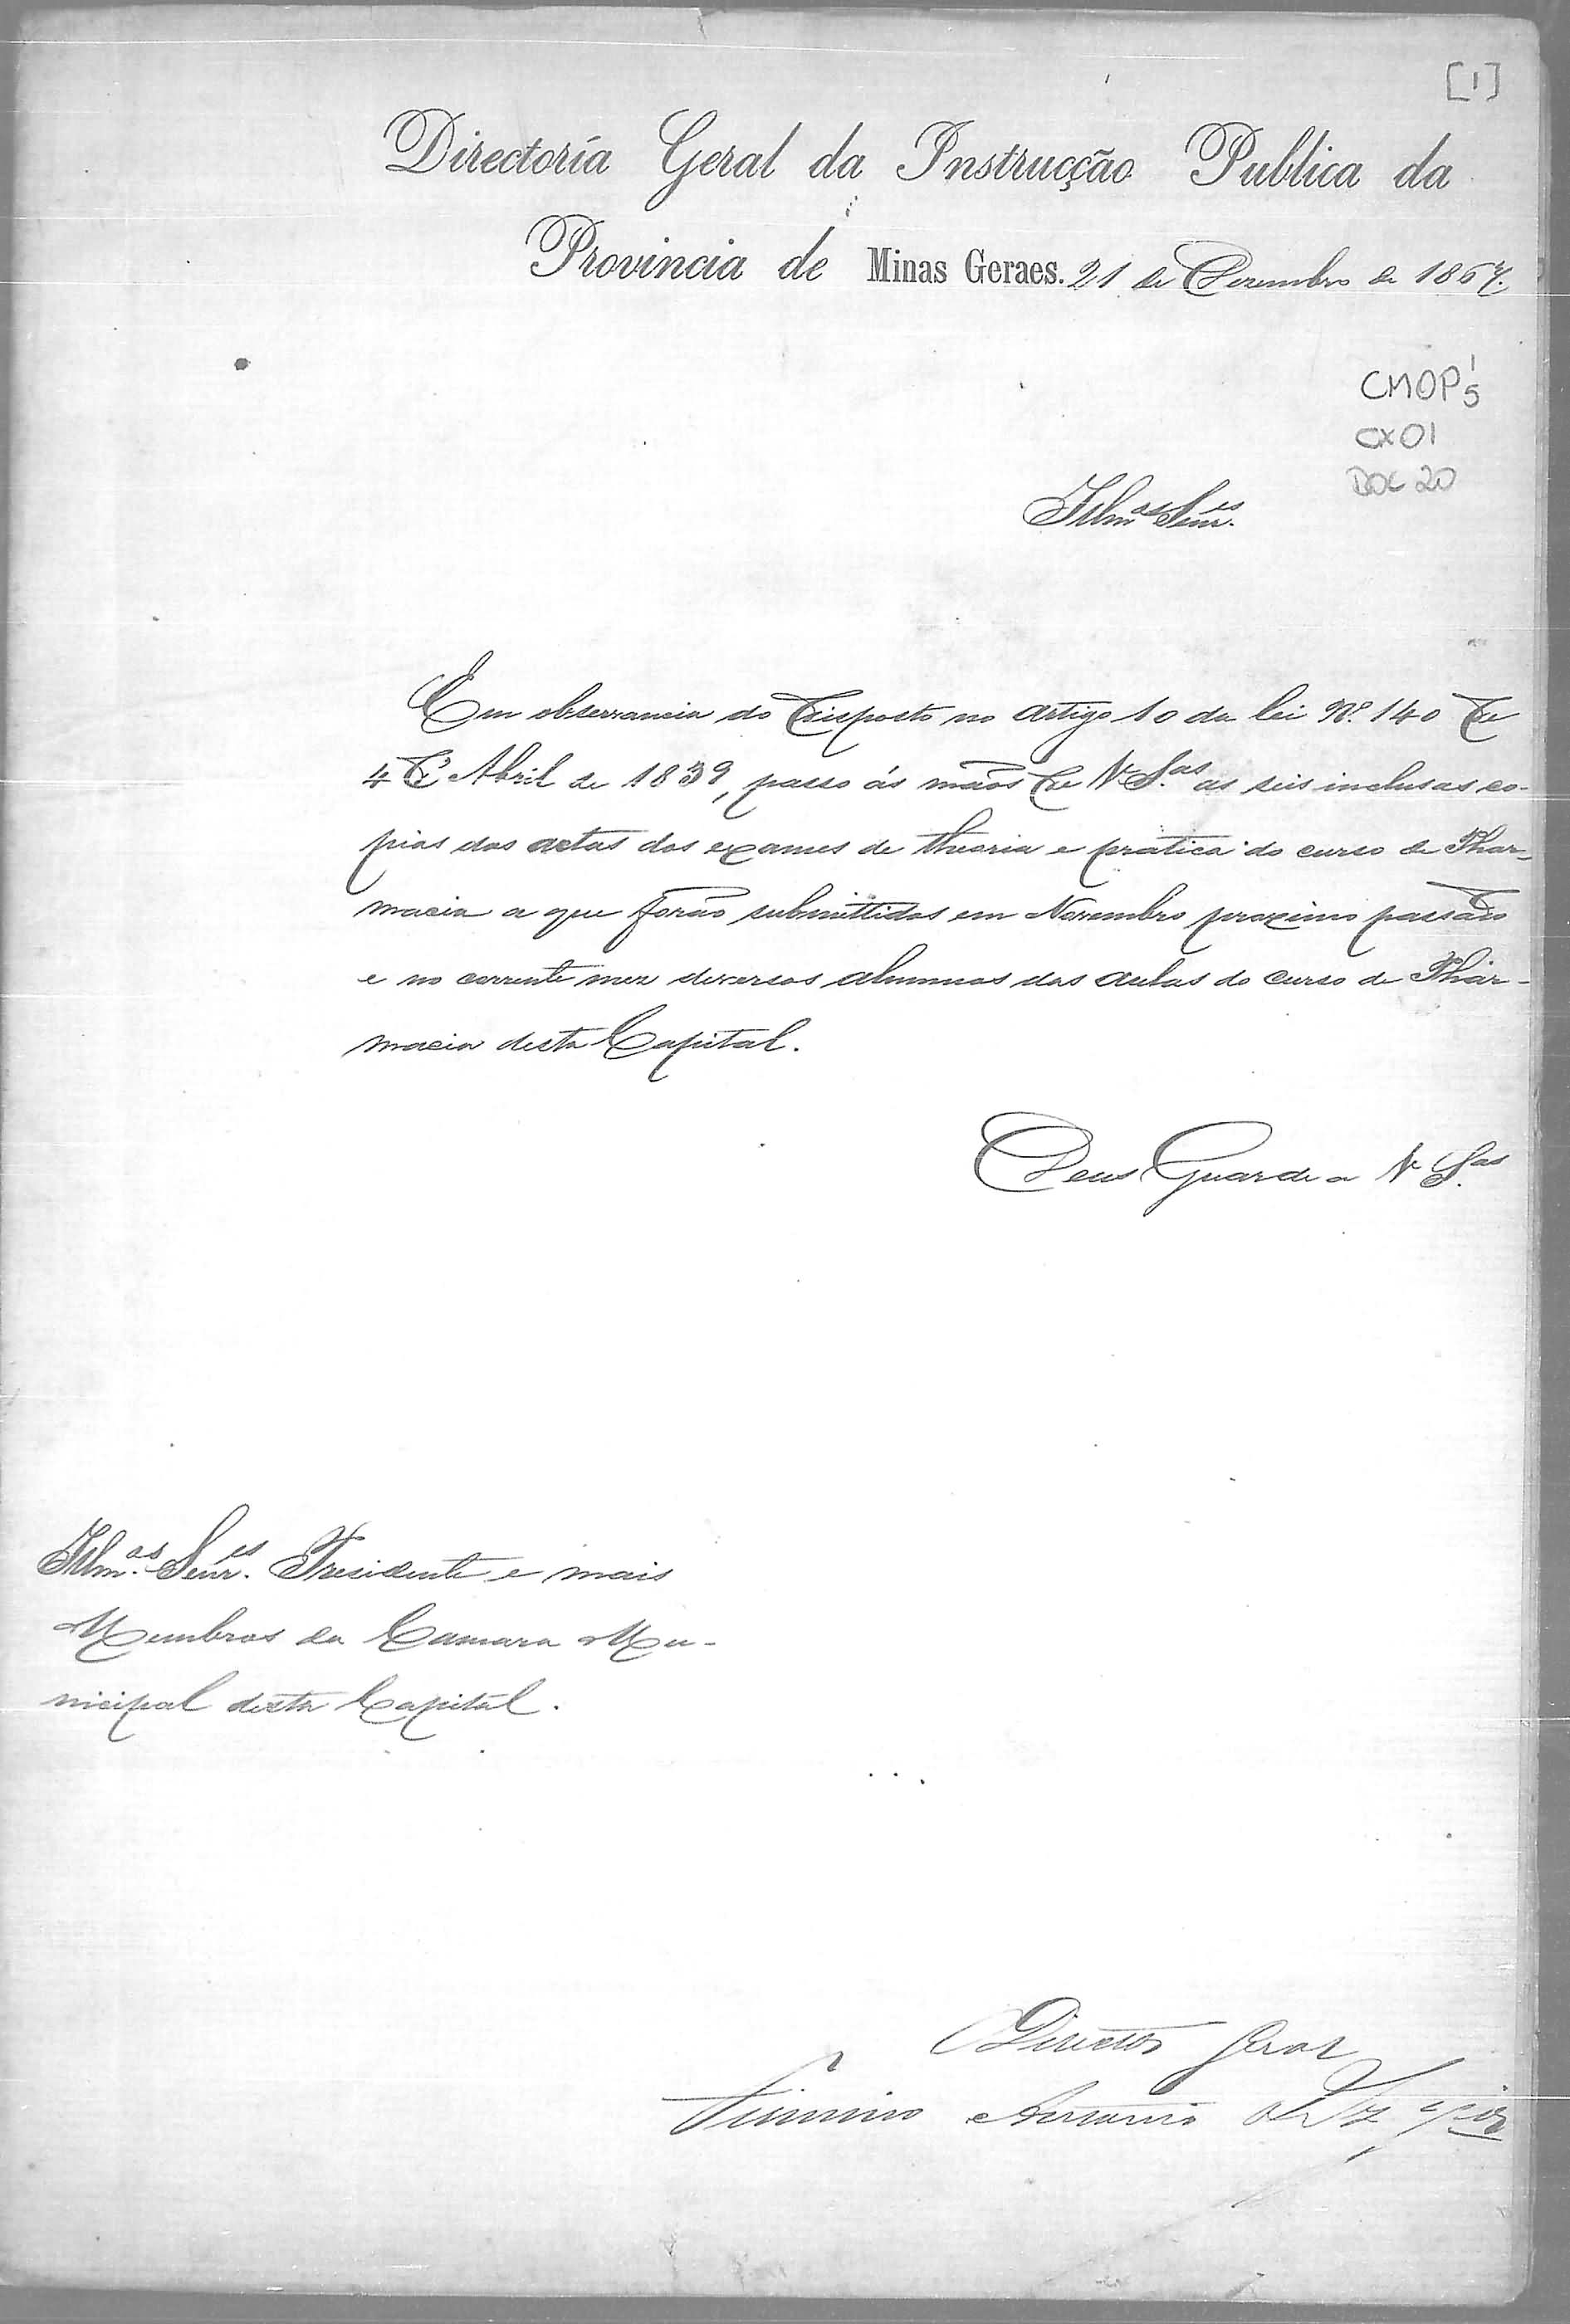 [1]
Directoría Geral da Instrucção Publica da
Provincia de Minas Geraes. 21 de Dezembro de 1867.
CMOP 1/5
CX 01
DOC 20
Illm.os Senr.es
Em observancia do disposto no artigo 10 da lei Nº. 140 de
4 de Abril de 1839, passo ás mãos de V. S.as as seis inclusas co-
pias das actas dos exames de theoria e pratica do curso de Phar-
macia a que forão submittidos em Novembro proximo passado
e no corrente mez diversos alumnos das aulas do curso de Phar-
macia desta Capital.
Deus Guarde a V. S.as
Illm.os Senr.es Presidente e mais
Membros da Camara Mu-
nicipal desta Capital.
O Director Geral
Firmino Antonio